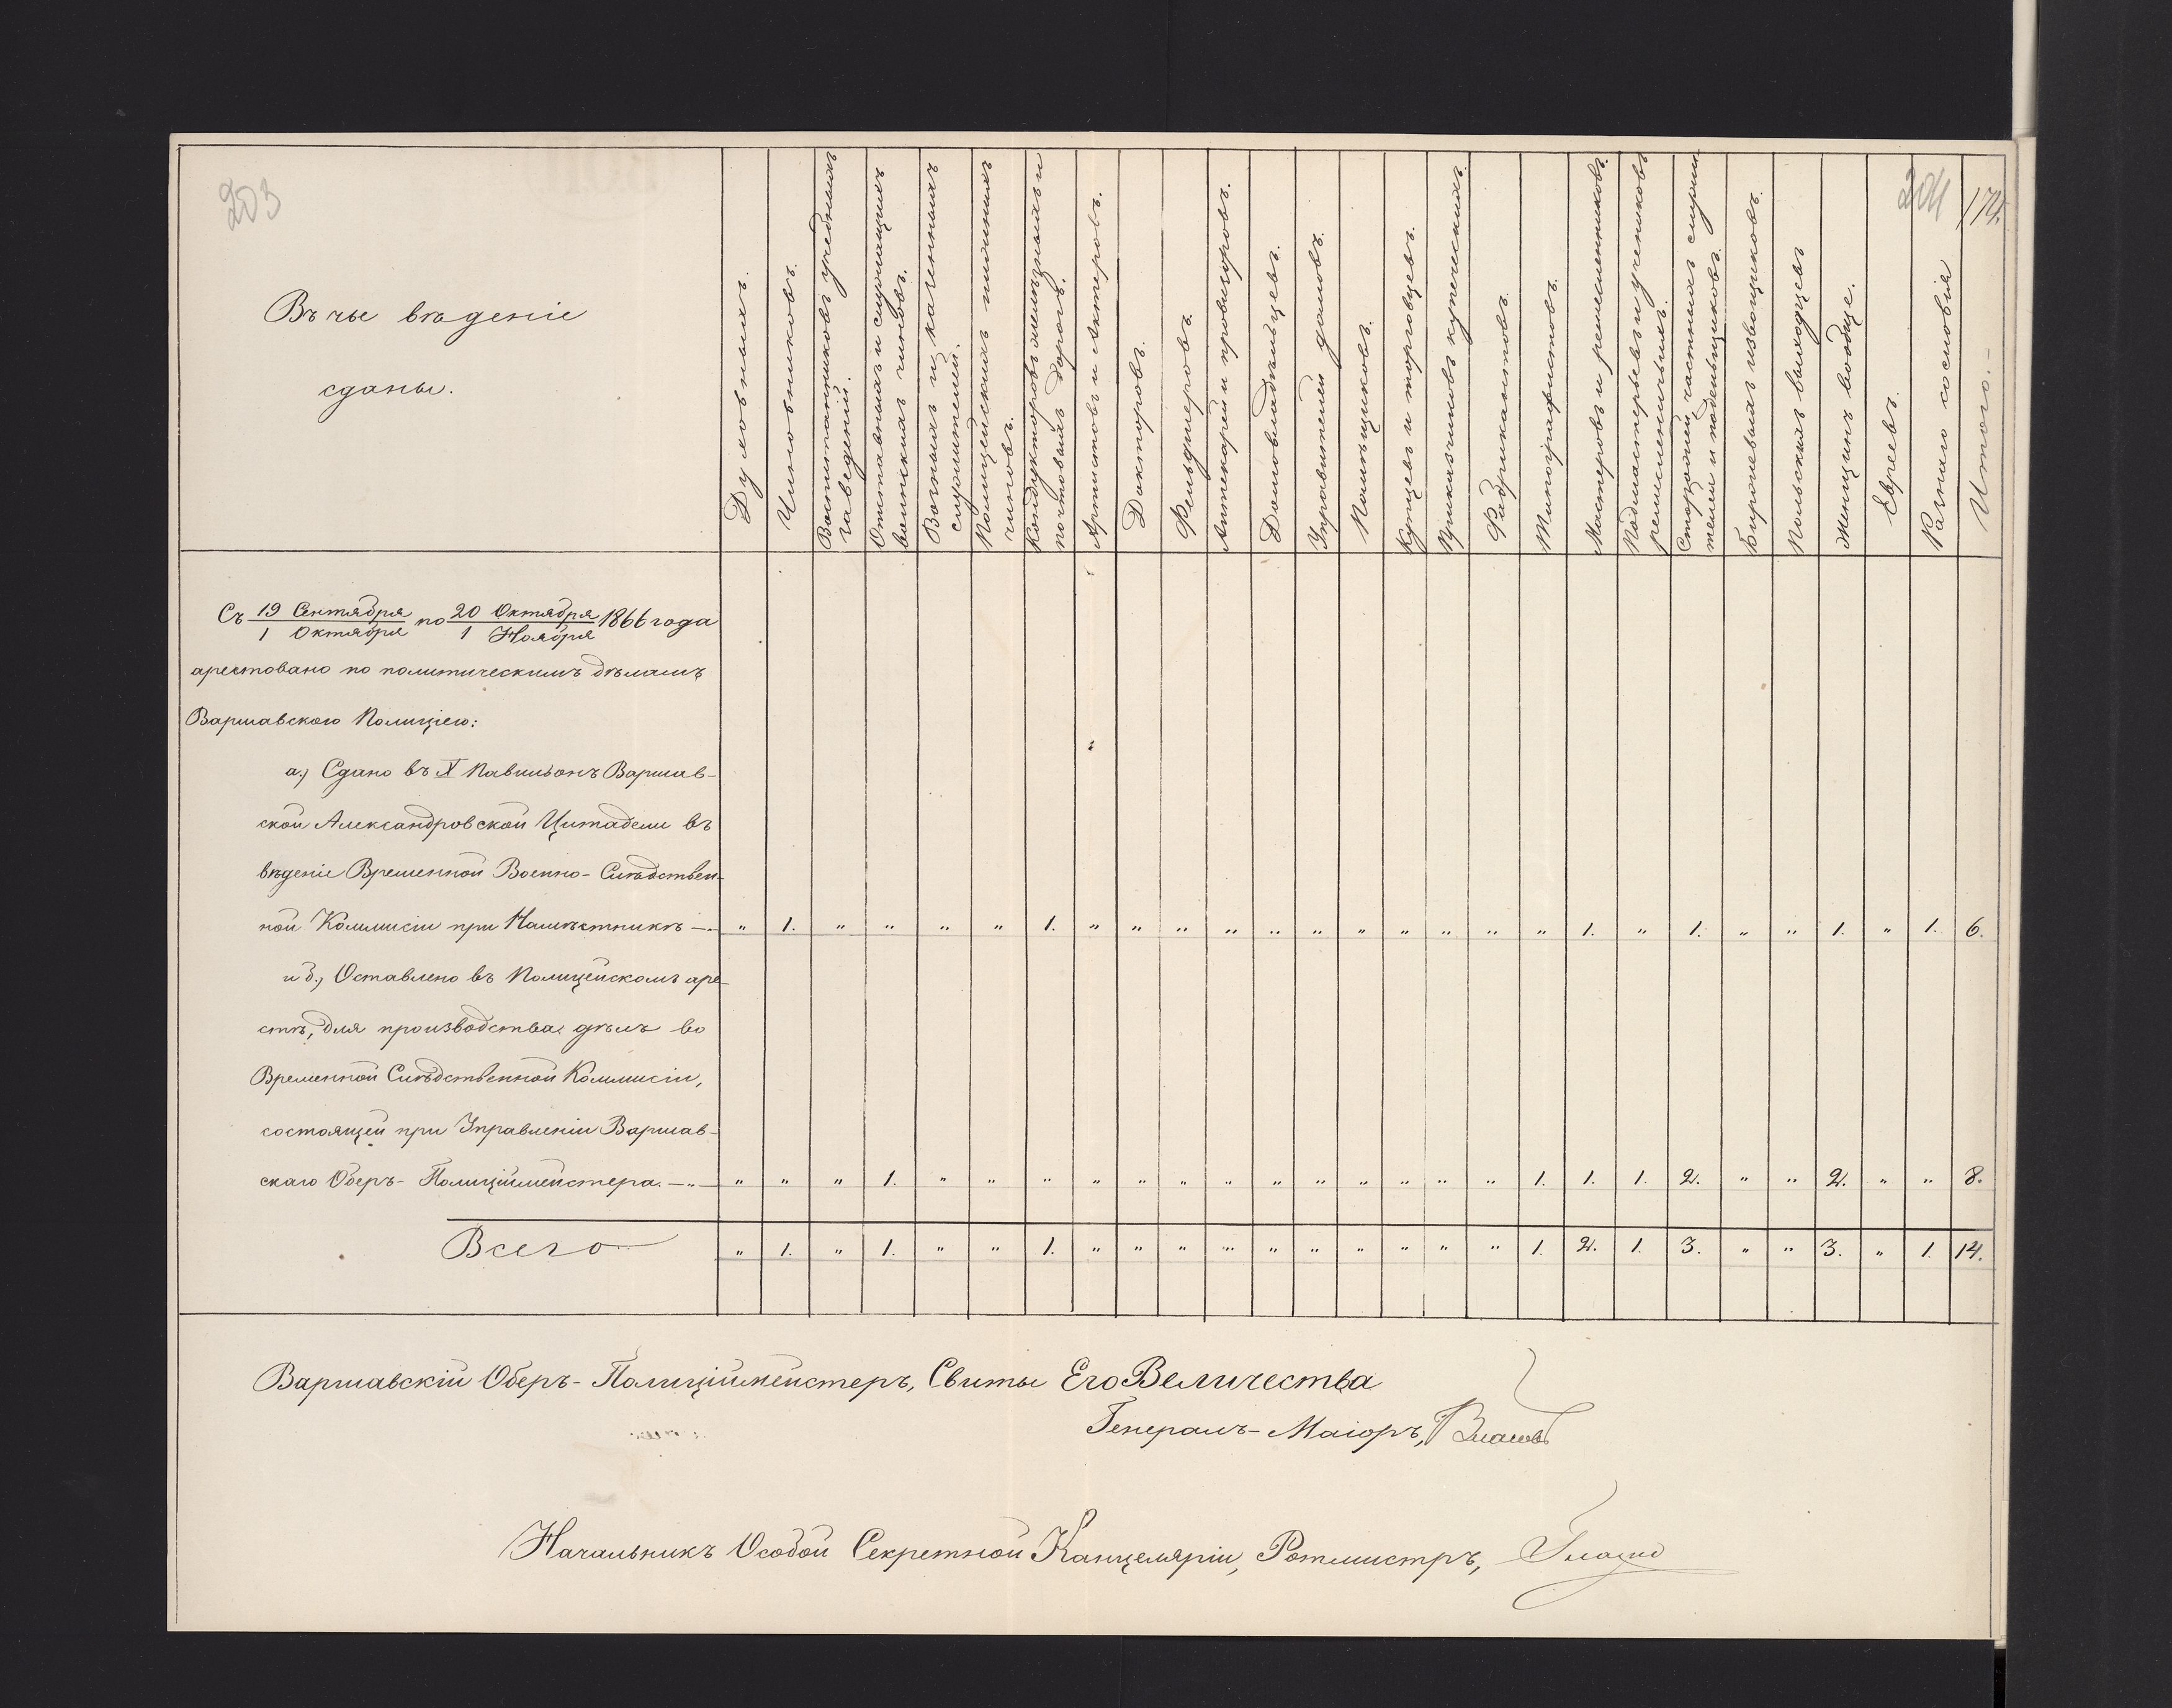 203
204
174.
Въ чье вѣденіе
сданы.
Духовныхъ.
Чиновниковъ.
Воспитанниковъ учебныхъ
заведеній.
Отставныхъ и служащихъ
воинскихъ чиновъ.
Вольныхъ и казенныхъ
служителей.
Полицейскихъ нижнихъ
чиновъ.
Кондукторовъ желѣзныхъ и
почтовыхъ дорогъ.
Артистовъ и Актеровъ.
Докторовъ.
Фельдшеровъ.
Аптекарей и провизоровъ.
Домовладѣльцевъ.
Управителей домовъ.
Помѣщиковъ.
Купцевъ и торговцевъ.
Прикащиковъ купеческихъ.
Фабрикантовъ.
Типографистовъ.
Мастеровъ и ремесленниковъ.
Подмастерьевъ и учениковъ
ремесленичьихъ.
Сторожей частныхъ служи-
телей и поденьщиковъ.
Биржевыхъ извощиковъ.
Польскихъ выходцевъ
Женщинъ вообще.
Евреевъ.
Разнаго сословія
Итого. —
Съ 19 Сентября / 1 Октября по 20 Октября / 1 Ноября 1866 года
арестовано по политическимъ дѣламъ
Варшавскою Полиціею:
а.) Сдано въ X Павильонъ Варшав-
ской Александровской Цитадели въ
вѣденіе Временной Военно-Слѣдствен-
ной Коммисіи при Намѣстникѣ — „ 1. „ „ „ „ 1. „ „ „ „ „ „ „ „ „ „ „ 1. „ 1. „ „ 1. „ 1. 6.
и б.) Оставлено въ Полицейскомъ аре-
стѣ, для производства дѣлъ во
Временной Слѣдственной Коммисіи,
состоящей при Управленіи Варшав-
скаго Оберъ-Полиціймейстера. — „ „ „ 1. „ „ „ „ „ „ „ „ „ „ „ „ „ 1. 1. 1. 2. „ „ 2. „ „ 8.
Всего „ 1. „ 1. „ „ 1. „ „ „ „ „ „ „ „ „ „ 1. 2. 1. 3. „ „ 3. „ 1. 14.
Варшавскій Оберъ-Полиціймейстеръ, Свиты Его Величества
Генералъ-Маіоръ, Власовъ
Начальникъ Особой Секретной Канцеляріи, Ротмистръ,